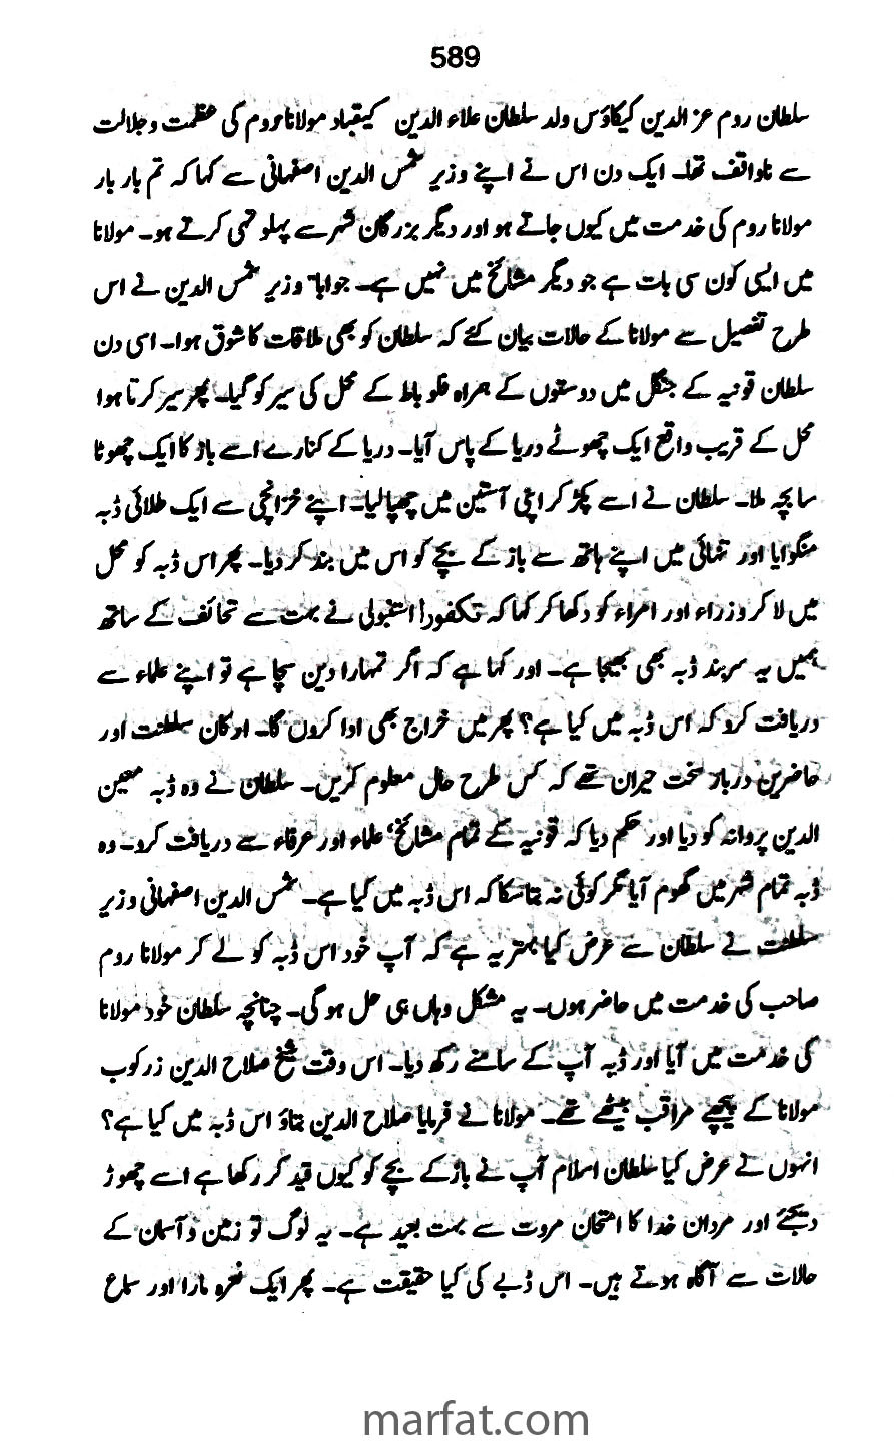 589
سلطان روم عز الدین کیکاؤس ولد سلطان علاء الدین کیقباد مولانا روم کی عظمت و جلالت
سے ناواقف تھا۔ ایک دن اس نے اپنے وزیر شمس الدین اصفہانی سے کہا کہ تم بار بار
مولانا روم کی خدمت میں کیوں جاتے ہو اور دیگر بزرگان شہر سے پہلو تہی کرتے ہو۔ مولانا
میں ایسی کون سی بات ہے جو دیگر مشائخ میں نہیں ہے۔ جواباً وزیر شمس الدین نے اس
طرح تفصیل سے مولانا کے حالات بیان کئے کہ سلطان کو بھی ملاقات کا شوق ہوا۔ اسی دن
سلطان قونیہ کے جنگل میں دوستوں کے ہمراہ فلوباط کے محل کی سیر کو گیا۔ پھر سیر کرتا ہوا
محل کے قریب واقع ایک چھوٹے دریا کے پاس آیا۔ دریا کے کنارے اسے باز کا ایک چھوٹا
سا بچہ ملا۔ سلطان نے اسے پکڑ کر اپنی آستین میں چھپا لیا۔ اپنے خزانچی سے ایک طلائی ڈبہ
منگوایا اور تنہائی میں اپنے ہاتھ سے باز کے بچے کو اس میں بند کر دیا۔ پھر اس ڈبہ کو محل
میں لا کر وزراء اور امراء کو دکھا کر کہا کہ تکفور استنبولی نے بہت سے تحائف کے ساتھ
ہمیں یہ سربند ڈبہ بھی بھیجا ہے۔ اور کہا ہے کہ اگر تمہارا دین سچا ہے تو اپنے علماء سے
دریافت کرو کہ اس ڈبہ میں کیا ہے؟ پھر میں خراج بھی ادا کروں گا۔ ارکان سلطنت اور
حاضرین دربار سخت حیران تھے کہ کس طرح حال معلوم کریں۔ سلطان نے وہ ڈبہ معین
الدین پروانہ کو دیا اور حکم دیا کہ قونیہ کے تمام مشائخ، علماء اور عرفاء سے دریافت کرو۔ وہ
ڈبہ تمام شہر میں گھوم آیا مگر کوئی نہ بتا سکا کہ اس ڈبہ میں کیا ہے۔ شمس الدین اصفہانی وزیر
سلطنت نے سلطان سے عرض کیا بہتر یہ ہے کہ آپ خود اس ڈبہ کو لے کر مولانا روم
صاحب کی خدمت میں حاضر ہوں۔ یہ مشکل وہاں ہی حل ہو گی۔ چنانچہ سلطان خود مولانا
کی خدمت میں آیا اور ڈبہ آپ کے سامنے رکھ دیا۔ اس وقت شیخ صلاح الدین زرکوب
مولانا کے پیچھے مراقب بیٹھے تھے۔ مولانا نے فرمایا صلاح الدین بتاؤ اس ڈبہ میں کیا ہے؟
انہوں نے عرض کیا سلطان اسلام آپ نے باز کے بچے کو کیوں قید کر رکھا ہے اسے چھوڑ
دیجئے اور مردان خدا کا امتحان مروت سے بہت بعید ہے۔ یہ لوگ تو زمین و آسمان کے
حالات سے آگاہ ہوتے ہیں۔ اس ڈبے کی کیا حقیقت ہے۔ پھر ایک نعرہ مارا اور سماع
marfat.com